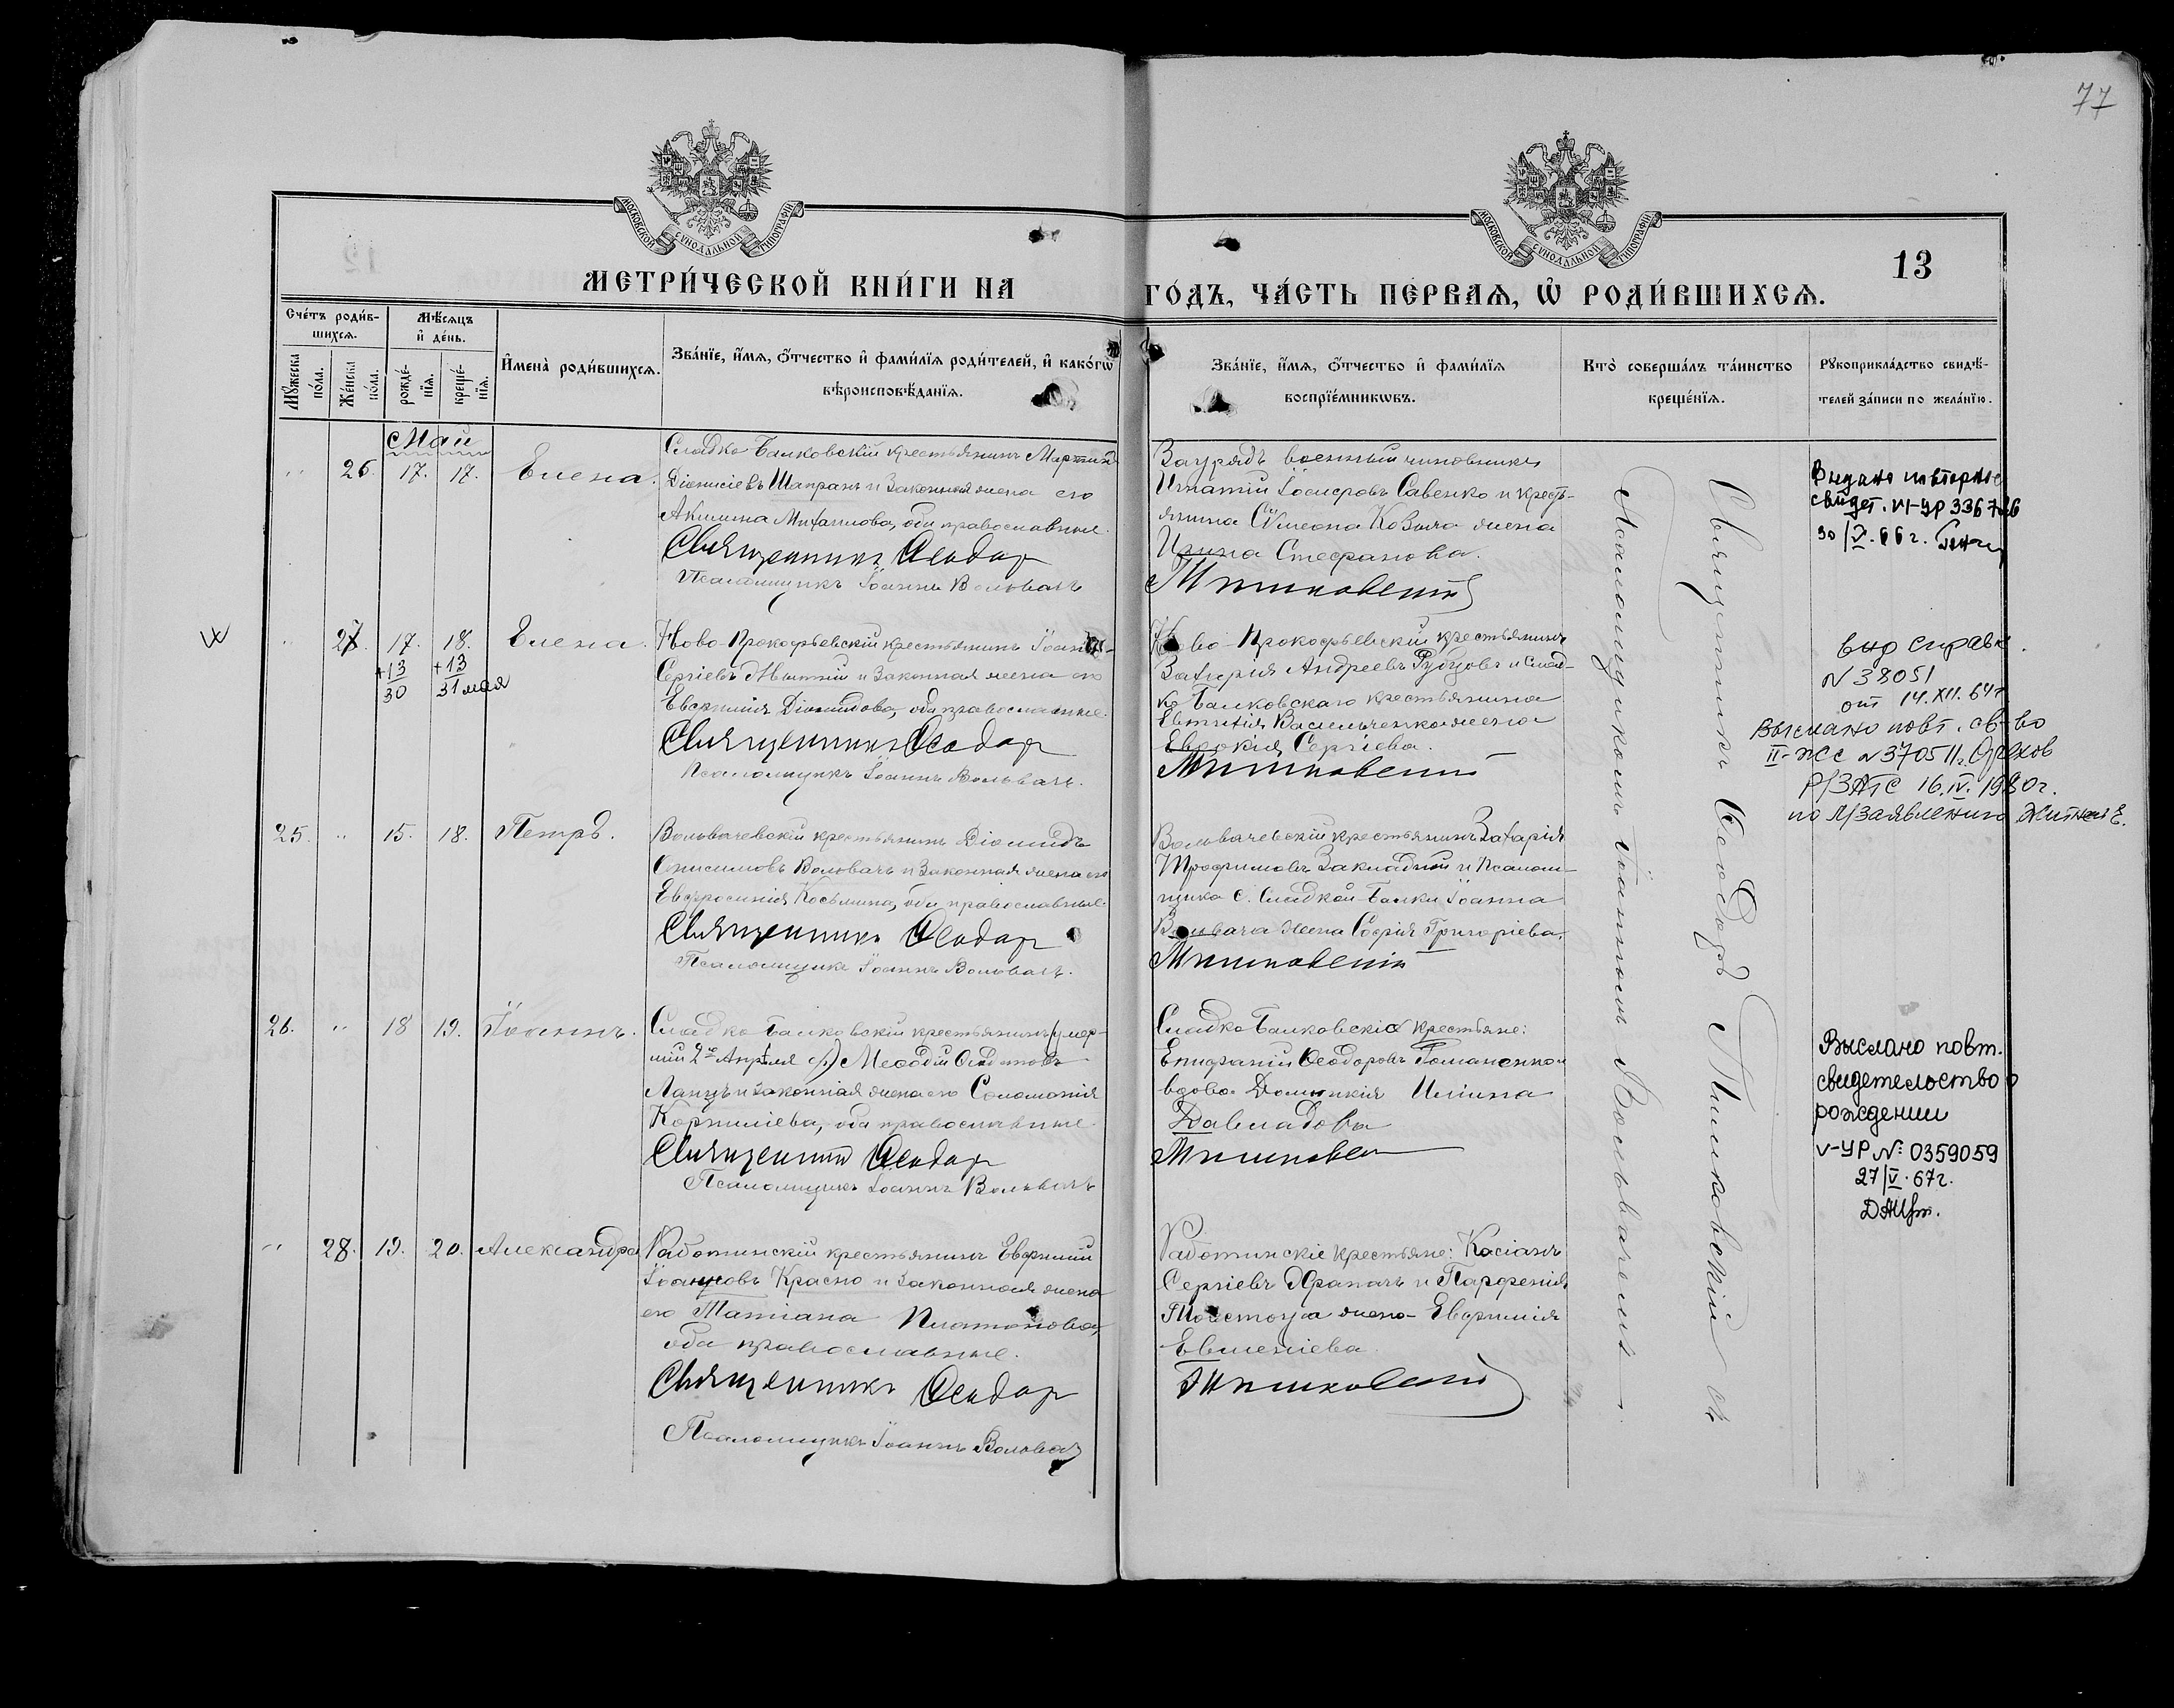 77
МОСКОВСКОЙ СУНОДАЛЬНОЙ ТИПОГРАФІИ
МОСКОВСКОЙ СУНОДАЛЬНОЙ ТИПОГРАФІИ
13
МЕТРИ́ЧЕСКОЙ КНИ́ГИ НА
ГО́ДЪ, ЧА́СТЬ ПЕ́РВАѦ, Ѡ҆ РОДИ́ВШИХСѦ.
Сче́тъ роди́в-
шихсѧ.
Мѣ́сѧцъ
и҆ де́нь.
Мꙋ́жеска
по́ла.
Же́нска
по́ла.
рожде́-
нїѧ.
креще́-
нїѧ.
И҆мена̀ роди́вшихсѧ.
Зва́нїе, и҆́мѧ, ѻ҆́тчество и҆ фами́лїѧ роди́телей, и҆ како́гѡ
вѣроисповѣ́данїѧ.
Зва́нїе, и҆́мѧ, ѻ҆́тчество и҆ фами́лїѧ
воспрїе́мникѡвъ.
Кто̀ соверша́лъ та́инство
креще́нїѧ.
Рꙋкоприкла́дство свидѣ́-
телей за́писи по жела́нїю.
Май
26. 17. 17. Елена.
Сладко-Балковскій крестьянинъ Мартинъ
Діонисіевъ Шапранъ и законная жена его
Акилина Михаилова, оба православные.
Священникъ Ѳеодор
Псаломщикъ Іоаннъ Вольвачъ
Заурядъ военный чиновникъ
Игнатій Іосифовъ Савенко и кресть-
янина Сѵмеона Козыра жена
Ирина Стефанова.
Тишковский
Выдано повторное
свидет. VI-УР 336726
30/V.66г.
27. 17. 18. Елена.
+13 +13
30 31 мая
Ново-Прокофьевскій крестьянинъ Іоаннъ
Сергіевъ Жытній и законная жена его
Евфимія Діомидова, оба православные.
Священникъ Ѳеодор
Псаломщикъ Іоаннъ Вольвачъ.
Ново-Прокофьевскій крестьянинъ
Захарія Андреевъ Рубцовъ и Слад-
ко-Балковскаго крестьянина
Евтихія Васильченка жена
Евдокія Сергіева.
Тишковский
выд справк.
N 38051
от 14.XII.64г
Выслано повт. св-во
II-ЖС N 370511 г. Орехов
Р/ЗАГС 16.IV.1980г.
по л/заявлению Житней Е.
25. 15. 18. Петръ.
Вольвачевскій крестьянинъ Діомидъ
Онисимовъ Вольвачъ и законная жена его
Евфросинія Косьмина, оба православные.
Священникъ Ѳеодор
Псаломщикъ Іоаннъ Вольвачъ.
Вольвачевскій крестьянинъ Захарія
Трофимовъ Закладной и Псалом-
щика с. Сладкой-Балки Іоанна
Вольвача жена Софія Григоріева.
Тишковский
26. 18 19. Іоаннъ.
Сладко-Балковскій крестьянинъ (умер-
шій 2го Апрѣля с/г) Меѳодій
Лапчъ и законная жена его Соломонія
Корниліева, оба православные
Священник Ѳеодор
Псаломщикъ Іоаннъ Вольвачъ
Сладко-Балковскіе крестьяне:
Епифаній Ѳеодоровъ Романенко и
вдова Домникія Иліина
Давладова
Тишковский
Выслано повт.
свидетельство о
рождении
V-УР №: 0359059
27/V.67г.
28. 19. 20. Александра
Работинскій крестьянинъ Евфимій
Іоанновъ Красно и законная жена
его Татіана Платонова,
оба православные.
Священникъ Ѳеодор
Псаломщикъ Іоаннъ Вольвачъ
Работинскіе крестьяне: Касіанъ
Сергіевъ Драпачъ и Парфенія
Толстоуса жена Евфимія
Евменіева.
Тишковский
Священникъ Ѳеодоръ Тишковскій съ
Псаломщикомъ Іоанномъ Вольвачемъ